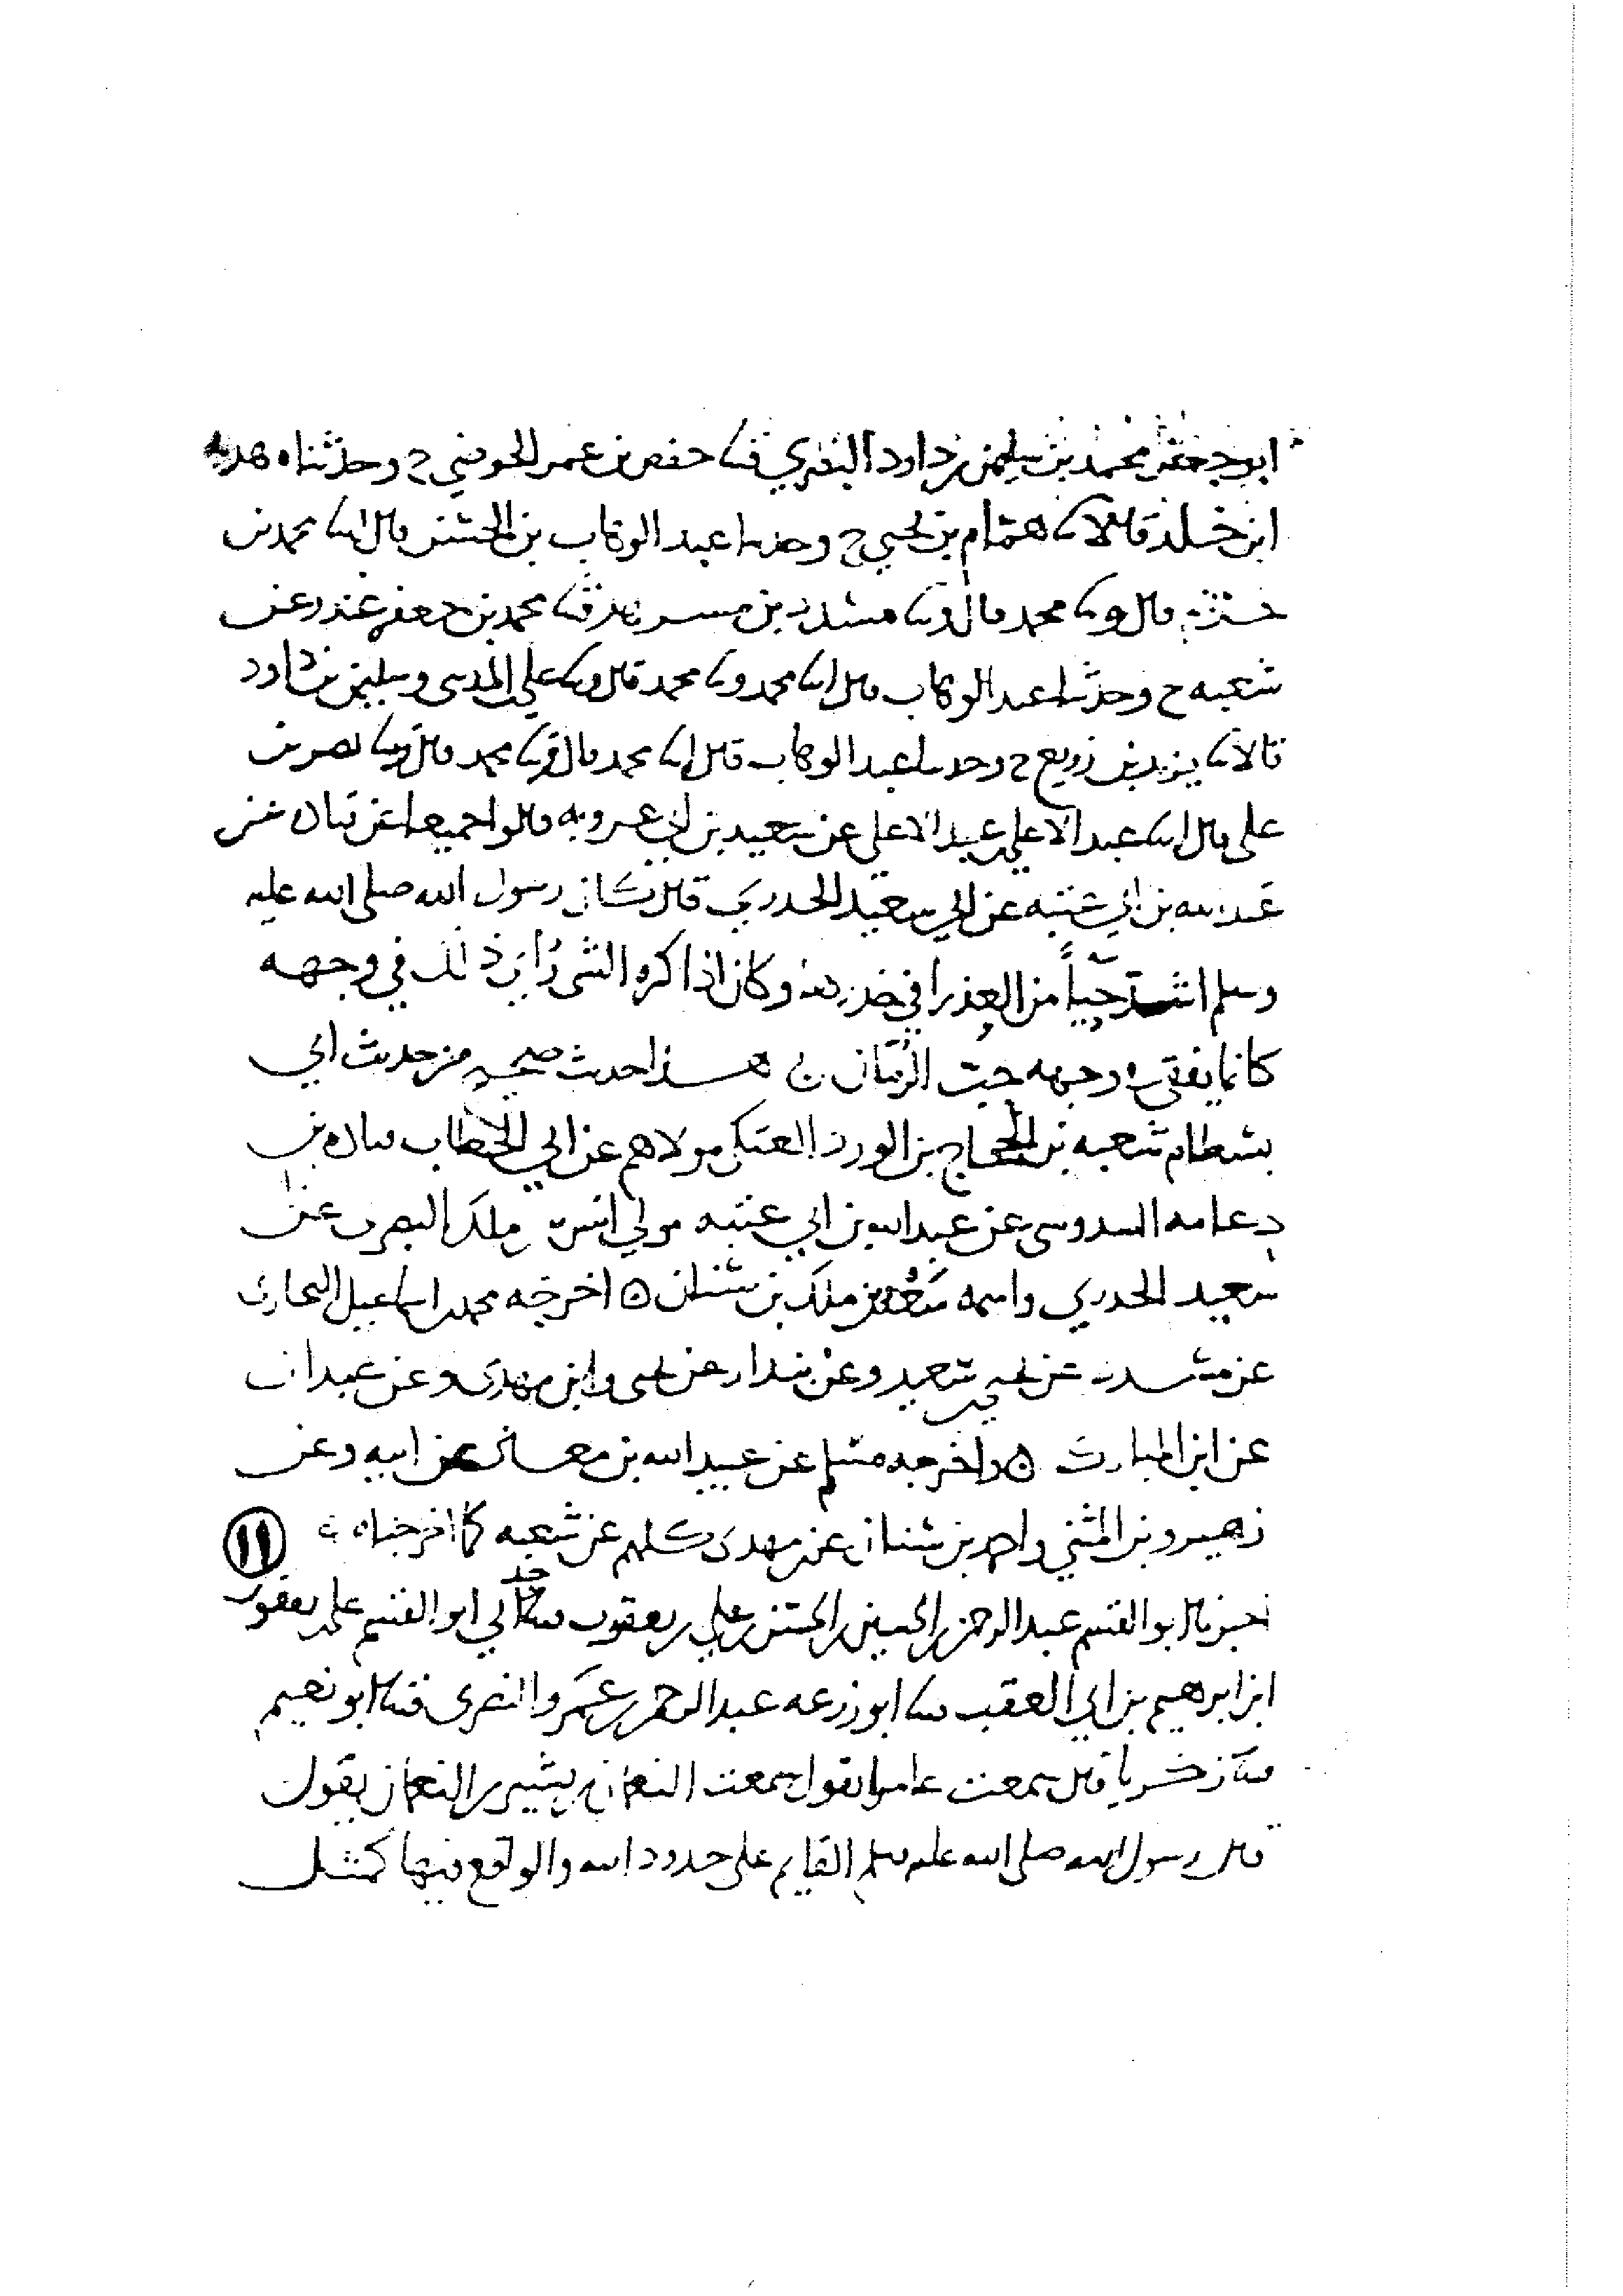 ابو جعفر محمد بن سليمن بن داود البصري ثنا حفص بن عمر الحوضي ح وحدثناه هدبه
ابن خلد قالا ثنا همام بن يحيي ح وحدثنا عبد الوهاب بن الحسن قال انا محمد بن
قال وثنا محمد قال وثنا مسدد بن مسرهد ثنا محمد بن جعفر غندر عن
شعبه ح وحدثنا عبد الوهاب قال انا محمد وثنا محمد قال وثنا علي المديني وسليمن بن داود
قالا ثنا يزيد بن زريع ح وحدثنا عبد الوهاب قال انا محمد قال وثنا محمد قال وثنا نصر بن
علي قال انا عبد الاعلي بن عبد الاعلي عن سعيد بن ابي عروبه قالوا جميعا عن قتاده عن
عبد الله بن ابي عتبه عن ابي سعيد الخدري قال كان رسول الله صلى الله عليه
وسلم اشد حياً من العذرا في خدرها وكان اذا كره الشي رُاي ذلك في وجهه
كانما يفقى في وجهه حبّ الرُمّان هذا حديث صحيح من حديث ابي
بسطام شعبه بن الحجاج بن الورد العتكي مولاهم عن ابي الخطاب قتاده بن
دعامه السدوسي عن عبد الله بن ابي عتبه مولي انس بن ملك البصري عن
سعيد الخدري واسمه سَعْد بن ملك بن سنان ه اخرجه محمد بن اسماعيل البخاري
عن مسدد عن يحيى بن سعيد وعن بندار عن يحيى وابن مهدي وعن عبدان
عن ابن المبارك ه واخرجه مسلم عن عبيد الله بن معاذ عن ابيه وعن
زهير وبن المثني واحمد بن سنان عن بن مهدي كلهم عن شعبه كما اخرجناه
١١
اخبرنا ابو القسم عبد الرحمن بن الحسين بن الحسن بن علي بن يعقوب ثنا جدي ابو القسم علي بن يعقوب
ابن ابرهيم بن ابي العقب ثنا ابو زرعه عبد الرحمن بن عَمرو النصري ثنا ابو نعيم
ثنا زكريا قال سمعت عامرا يقول سمعت النعمان بن بشير بن النعمان يقول
قال رسول الله صلى الله عليه وسلم القايم على حدود الله والواقع فيها كمثل